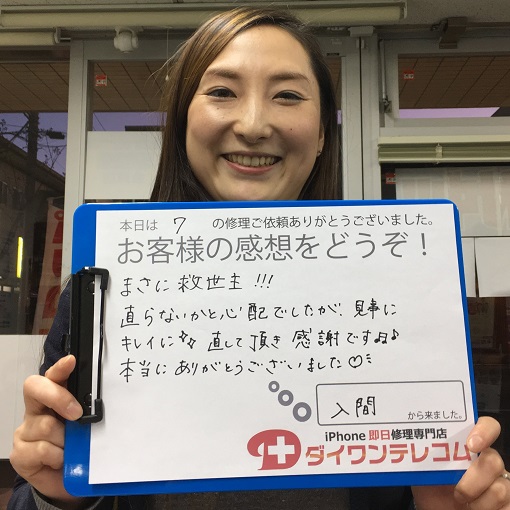 本日は 7 の修理ご依頼ありがとうございました。
お客様の感想をどうぞ！
まさに救世主!!!
直らないかと心配でしたが、見事に
キレイに✨直して頂き感謝です♫♪
本当にありがとうございました♡
入間 から来ました。
iPhone 即日修理専門店
ダイワンテレコム